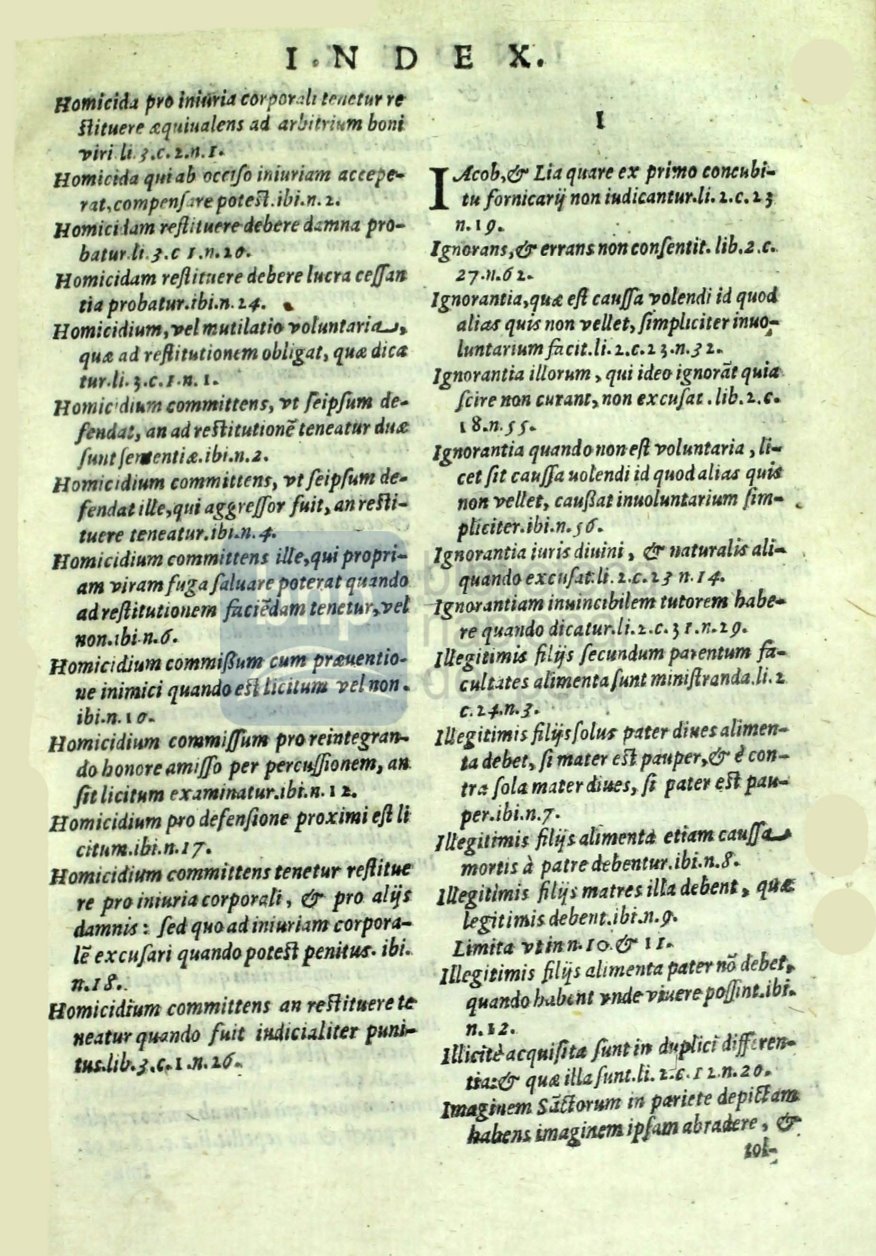 INDEX.
Homicida pro iniuria corporali tenetur re
stituere æquiualens ad arbitrium boni
viri li. 3. c. 2. n. 1.
Homicida qui ab occiso iniuriam accepe-
rat, compensare potest. ibi. n. 2.
Homicidam restituere debere damna pro-
batur. li. 3. c 1. n. 20.
Homicidam restituere debere lucra cessan
tia probatur. ibi. n. 24.
Homicidium, vel mutilatio voluntaria,
quæ ad restitutionem obligat, quæ dica
tur. li. 3. c. 1. n. 1.
Homicidium committens, vt seipsum de-
fendat, an ad restitutionẽ teneatur duæ
sunt sententiæ. ibi. n. 2.
Homicidium committens, vt seipsum de-
fendat ille, qui aggressor fuit, an resti-
tuere teneatur. ibi. n. 4.
Homicidium committens ille, qui propri-
am viram fuga saluare poterat quando
ad restitutionem faciẽdam tenetur, vel
non. ibi n. 6.
Homicidium commissum cum præuentio-
ne inimici quando est licitum vel non.
ibi. n. 10.
Homicidium commissum pro reintegran-
do honore amisso per percussionem, an
sit licitum examinatur. ibi. n. 12.
Homicidium pro defensione proximi est li
citum. ibi. n. 17.
Homicidium committens tenetur restitue
re pro iniuria corporali, & pro alijs
damnis: sed quo ad iniuriam corpora-
lẽ excusari quando potest penitus. ibi.
n. 18.
Homicidium committens an restituere te
neatur quando fuit iudicialiter puni-
tus. lib. 3. c. 1. n. 26.
I
IAcob, & Lia quare ex primo concubi-
tu fornicarij non iudicantur. li. 2. c. 23
n. 19.
Ignorans, & errans non consentit. lib. 2. c.
27. n. 62.
Ignorantia, quæ est caussa volendi id quod
alias quis non vellet, simpliciter inuo-
luntarium facit. li. 2. c. 23. n. 32.
Ignorantia illorum, qui ideo ignorãt quia
scire non curant, non excusat. lib. 2. c.
18. n. 55.
Ignorantia quando non est voluntaria, li-
cet sit caussa uolendi id quod alias quis
non vellet, caussat inuoluntarium sim-
pliciter. ibi. n. 56.
Ignorantia iuris diuini, & naturalis ali-
quando excusat. li. 2. c. 23 n. 14.
Ignorantiam inuincibilem tutorem habe-
re quando dicatur. li. 2. c. 31. n. 29.
Illegitimis filijs secundum parentum fa-
cultates alimenta sunt ministranda. li. 2
c. 24. n. 3.
Illegitimis filijs solus pater diues alimen-
ta debet, si mater est pauper, & è con-
tra sola mater diues, si pater est pau-
per. ibi. n. 7.
Illegitimis filijs alimenta etiam caussa
mortis à patre debentur. ibi. n. 8.
Illegitimis filijs matres illa debent, quæ
legitimis debent. ibi. n. 9.
Limita vt in n. 10. & 11.
Illegitimis filijs alimenta pater nõ debet,
quando habent vnde viuere possint. ibi.
n. 12.
Illicitè acquisita sunt in duplici differen-
tia: & quæ illa sunt. li. 2. c. 12. n. 20.
Imaginem Sãctorum in pariete depictam
habens imaginem ipsam abradere, &
tol-